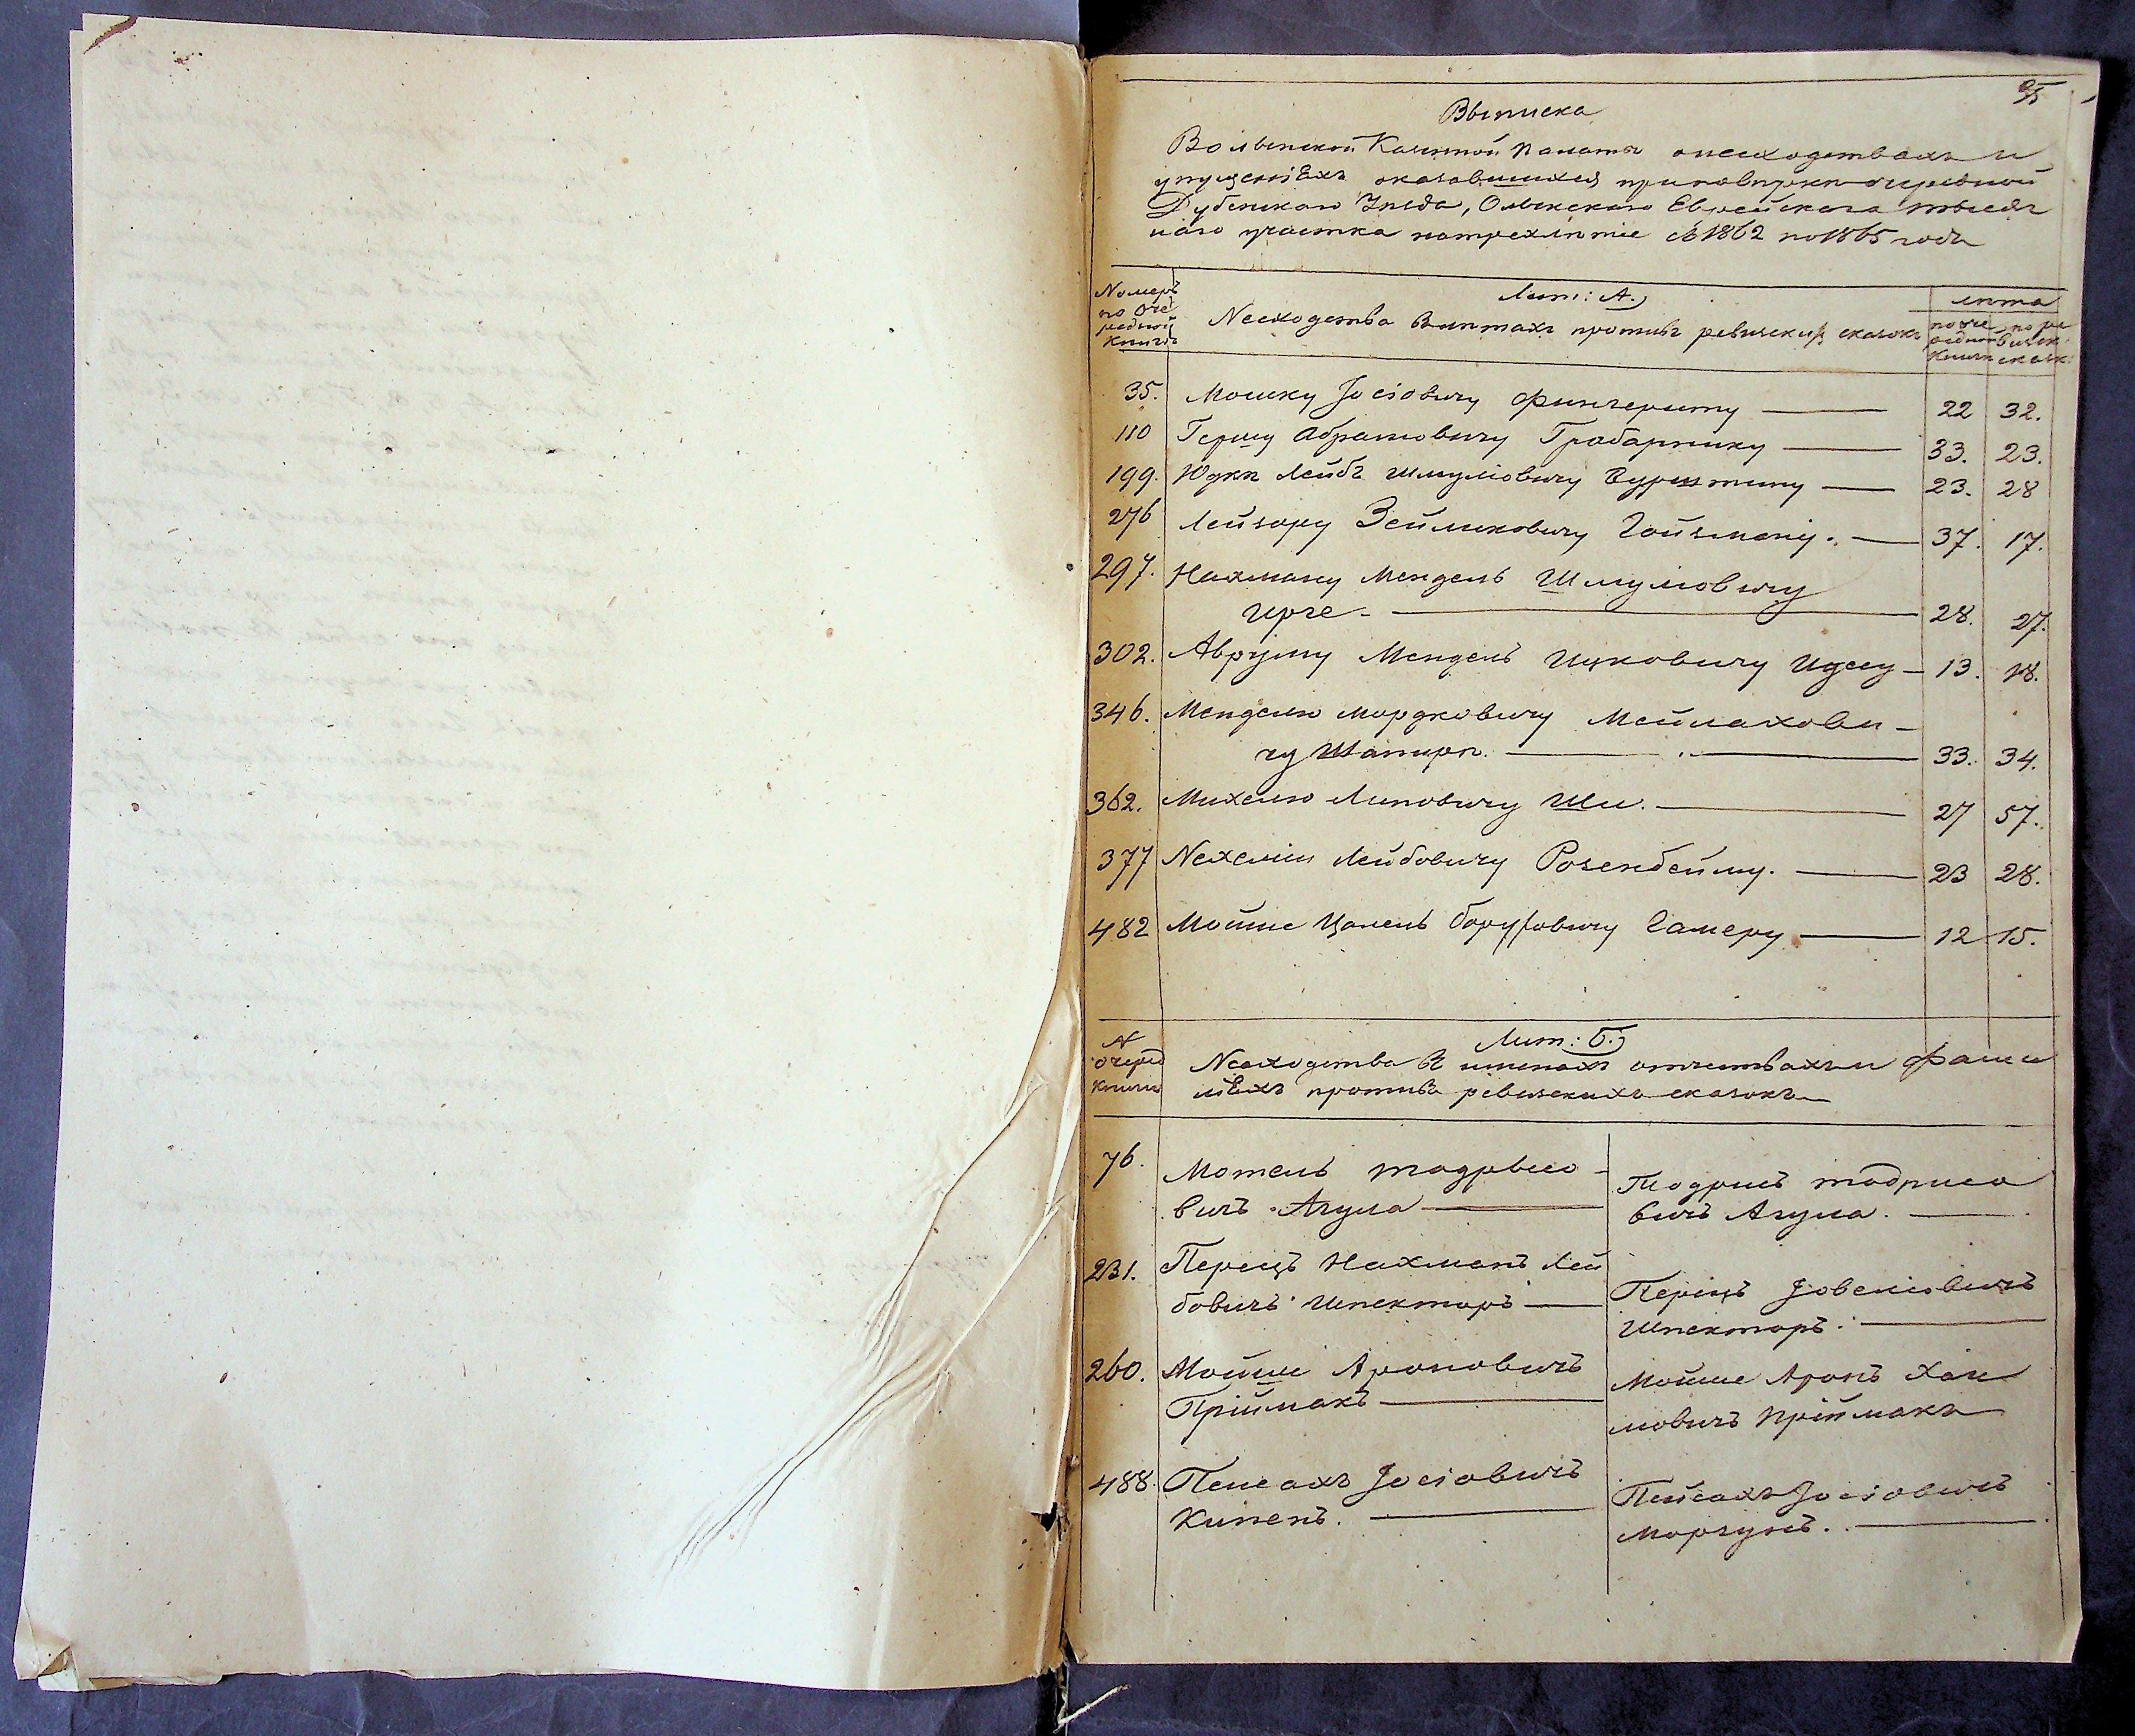 95
Выписка
Волынской Казенной Палаты о несходствахъ и
упущеніяхъ оказавшихся при повѣркѣ очередной
Дубенскаго Уѣзда, Олыкскаго Еврейскаго тысяч
наго участка на трехлѣтіе съ 1862 по 1865 годъ
Номеръ по Оче редной Книгѣ
Лит: А.)
Несходства въ лѣтахъ противъ ревизскихъ сказокъ
лѣта
по оче редной Книгѣ
по ре визск: сказк:
35. Мошку Іосіовичу Фингеруту 22 32.
110 Гершу Абрамовичу Грабарнику 33. 23.
199. Юдкѣ Лейбѣ Шмуліовичу Бурштину 23. 28
276 Лейзору Зейликовичу Гойзману. 37. 17.
297. Нахману Мендель Шмуліовичу
Ирге - 28. 27.
302. Авруму Мендель Ицковичу Идесу - 13. 18.
346. Менделю Мордковичу Мейлахови -
чу Шапирѣ. 33. 34.
362. Михелю Липовичу Ши. 27 57.
377 Нехеміи Лейбовичу Розенбейму. 23 28.
482 Мойше Цанель Боруховичу Гамеру 12 15.
N очеред Книги
Лит: Б.)
Несходства въ именахъ отчествахъ и фами
ліяхъ противъ ревизскихъ сказокъ
76. Мотель Тодрысо -
вичъ Агула
Тодрисъ Тодрисо
вичъ Агула.
231. Перецъ Нахманъ Лей
бовичъ Шпекторъ
Перецъ Іовеліовичъ
Шпекторъ.
260. Мойше Ароновичъ
Приймакъ
Мойше Аронъ Хаи
мовичъ Приймакъ
488. Пейсахъ Іосіовичъ
Кипенъ.
Пейсахъ Іосіовичъ
Моргунъ.